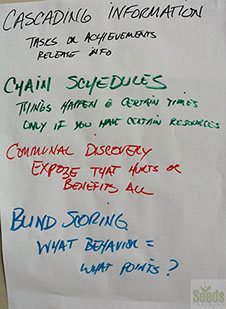 CASCADING INFORMATION
TASKS OR ACHIEVEMENTS
RELEASE INFO
CHAIN SCHEDULES
THINGS HAPPEN @ CERTAIN TIMES
ONLY IF YOU HAVE CERTAIN RESOURCES
COMMUNAL DISCOVERY
EXPOSE THAT HURTS OR
BENEFITS ALL
BLIND SCORING
WHAT BEHAVIOR =
WHAT POINTS?
Seeds